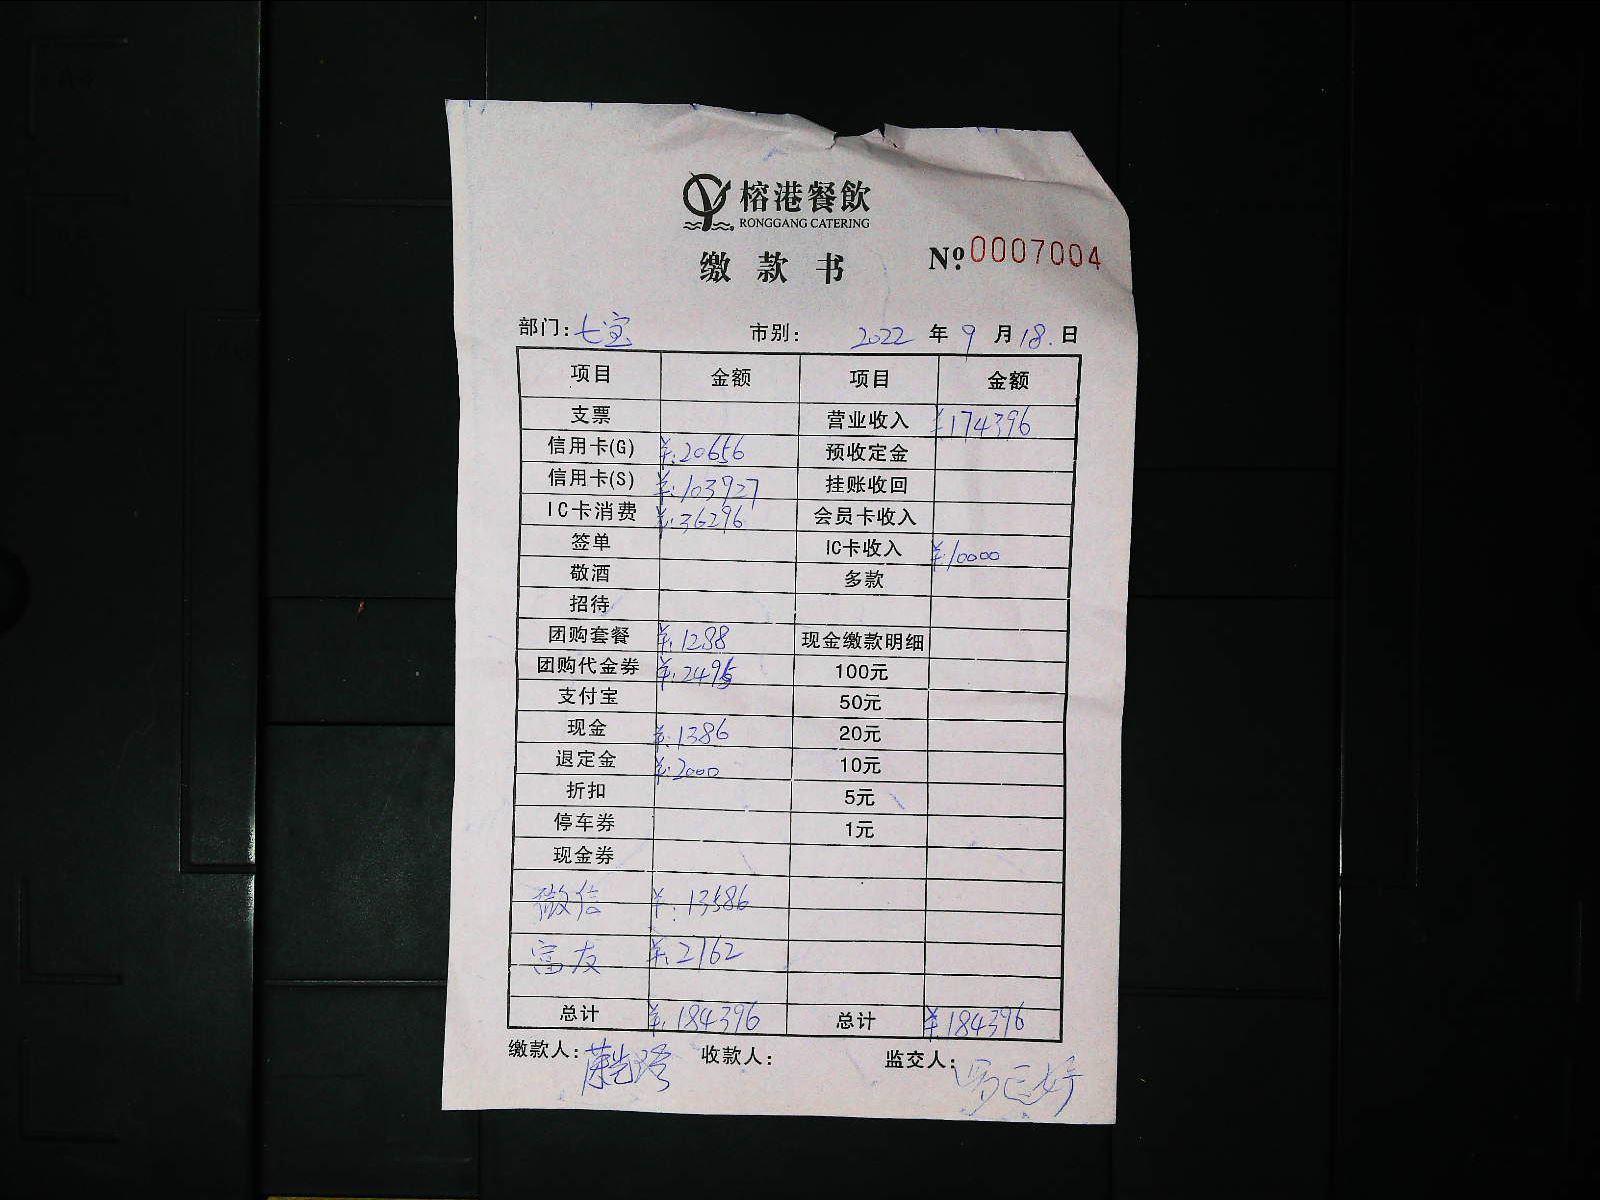 榕港餐飲
RONGGANG CATERING
缴款书 Nº. 0007004
部门: 七宝 市别: 2022 年 9 月 18. 日
项目 金额 项目 金额
支票 营业收入 ¥174396
信用卡(G) ¥:20656 预收定金
信用卡(S) ¥:103927 挂账收回
IC卡消费 ¥:36296 会员卡收入
签单 IC卡收入 ¥:10000
敬酒 多款
招待
团购套餐 ¥:1288 现金缴款明细
团购代金券 ¥:2495 100元
支付宝 50元
现金 ¥:1386 20元
退定金 ¥:2000 10元
折扣 5元
停车券 1元
现金券
微信 ¥:13586
富友 ¥:2762
总计 ¥:184396 总计 ¥:184396
缴款人: 收款人: 监交人: